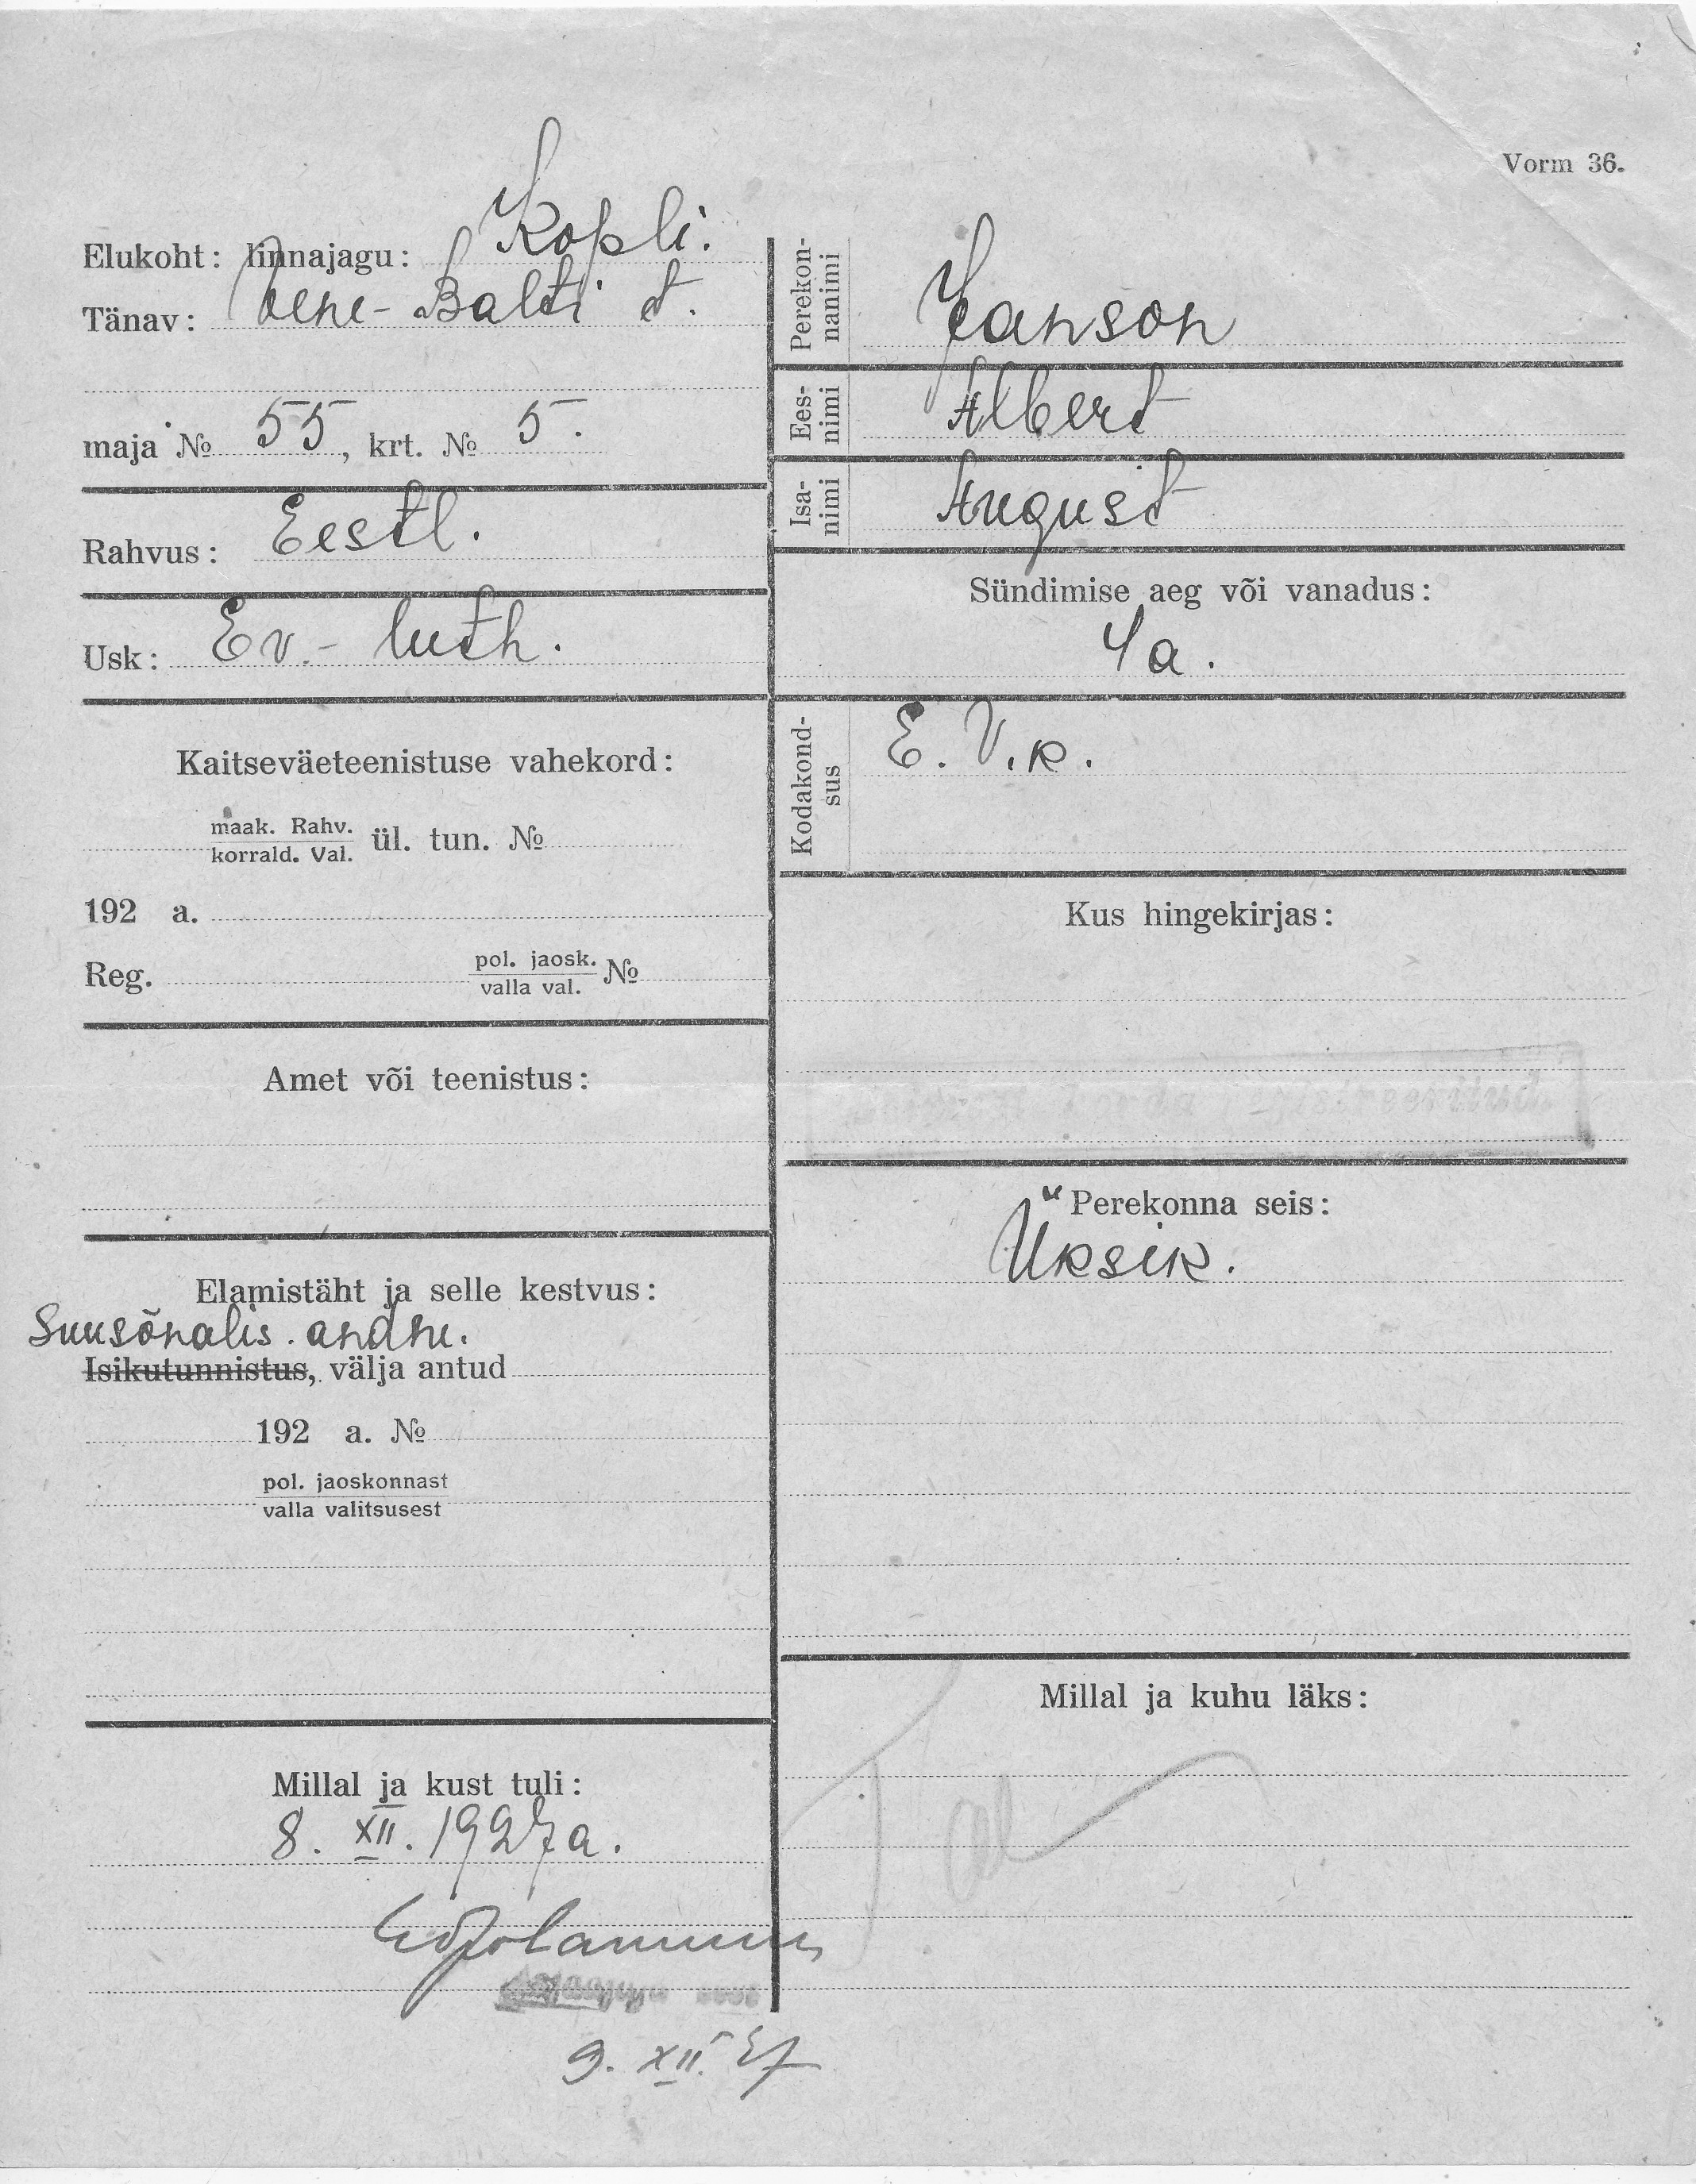 Vorm 36.
Elukoht: linnajagu: Kopli.
Tänav: Vene-Balti t.
maja № 55, krt. № 5.
Rahvus: Eestl.
Usk: Ev.-luth.
Kaitseväeteenistuse vahekord:
maak. Rahv.
korrald. Val. ül. tun. №
192 a.
Reg. pol. jaosk.
valla val. №
Amet või teenistus:
Elamistäht ja selle kestvus:
Suusõnalis. andm.
Isikutunnistus, välja antud
192 a. №
pol. jaoskonnast
valla valitsusest
Millal ja kust tuli:
8. XII. 1927 a.
9. XII. 27
Perekon-
nanimi
Janson
Ees-
nimi
Albert
Isa-
nimi
August
Sündimise aeg või vanadus:
4 a.
Kodakond-
sus
E. V. k.
Kus hingekirjas:
korda registreeritud
Perekonna seis:
Üksik.
Millal ja kuhu läks: